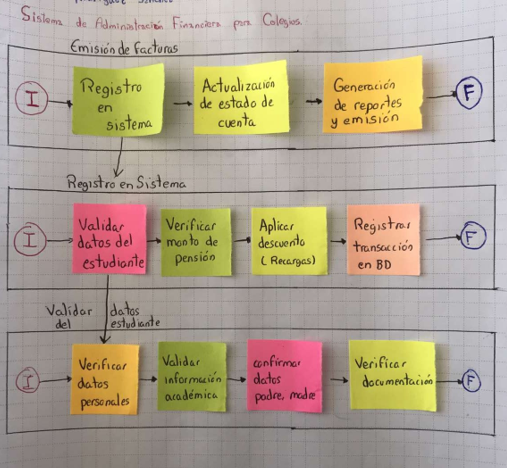 Sistema de Administración Financiera para Colegios.
Emisión de facturas
I
Registro
en
sistema
Actualización
de estado de
cuenta
Generación
de reportes
y emisión
F
Registro en Sistema
I
Validar
datos del
estudiante
Verificar
monto de
pensión
Aplicar
descuento
(Recargas)
Registrar
transacción
en BD
F
Validar datos
del estudiante
I
Verificar
datos
personales
Validar
información
académica
confirmar
datos
padre, madre
Verificar
documentación
F